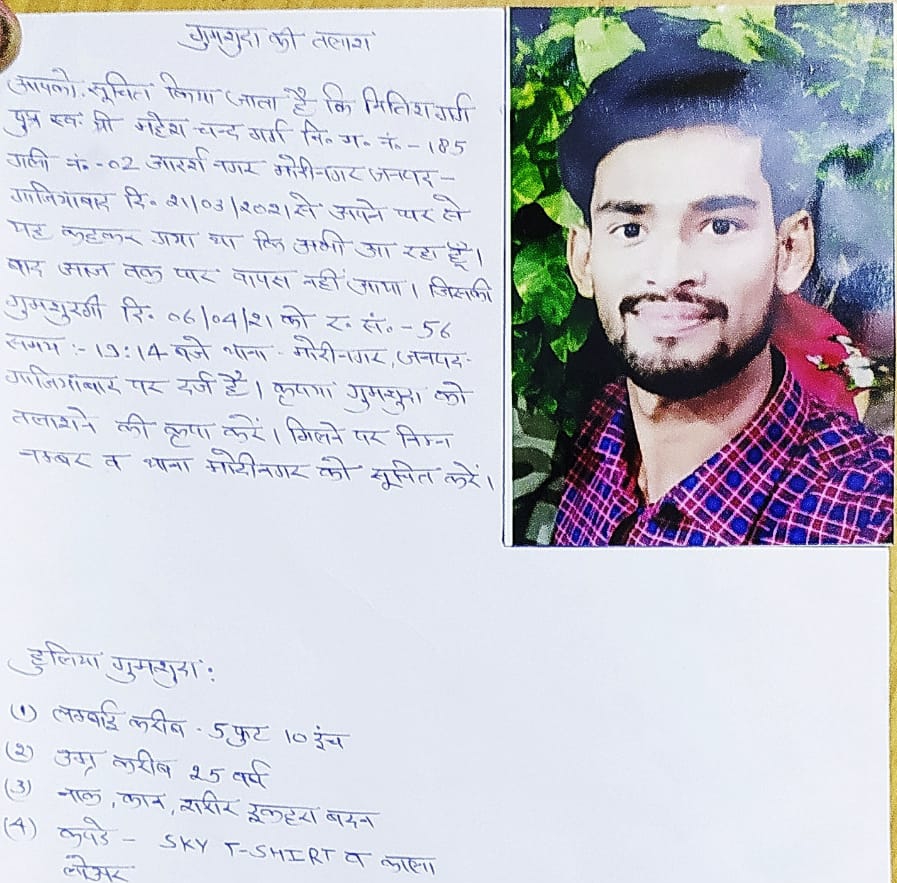 गुमशुदा की तलाश
आपको सूचित किया जाता है कि मितिश गर्ग
पुत्र स्व. श्री महेश चन्द गर्ग नि० म० नं०-185
गली नं.-02 आदर्श नगर मोदीनगर जनपद-
गाजियाबाद दि० 21/03/2021 से अपने घर से
यह कहकर गया था कि अभी आ रहा हूँ।
बाद आज तक घर वापस नहीं आया। जिसकी
गुमशुदगी दि० 06/04/21 को र० सं०-56
समय :- 19:14 बजे थाना- मोदीनगर, जनपद-
गाजियाबाद पर दर्ज है। कृपया गुमशुदा को
तलाशने की कृपा करें। मिलने पर निम्न
नम्बर व थाना मोदीनगर को सूचित करें।
हुलिया गुमशुदा:
(1) लम्बाई करीब - 5 फुट 10 इंच
(2) उम्र करीब 25 वर्ष
(3) नाक, कान, शरीर इकहरा बदन
(4) कपडे - SKY T-SHIRT व काला
लोअर